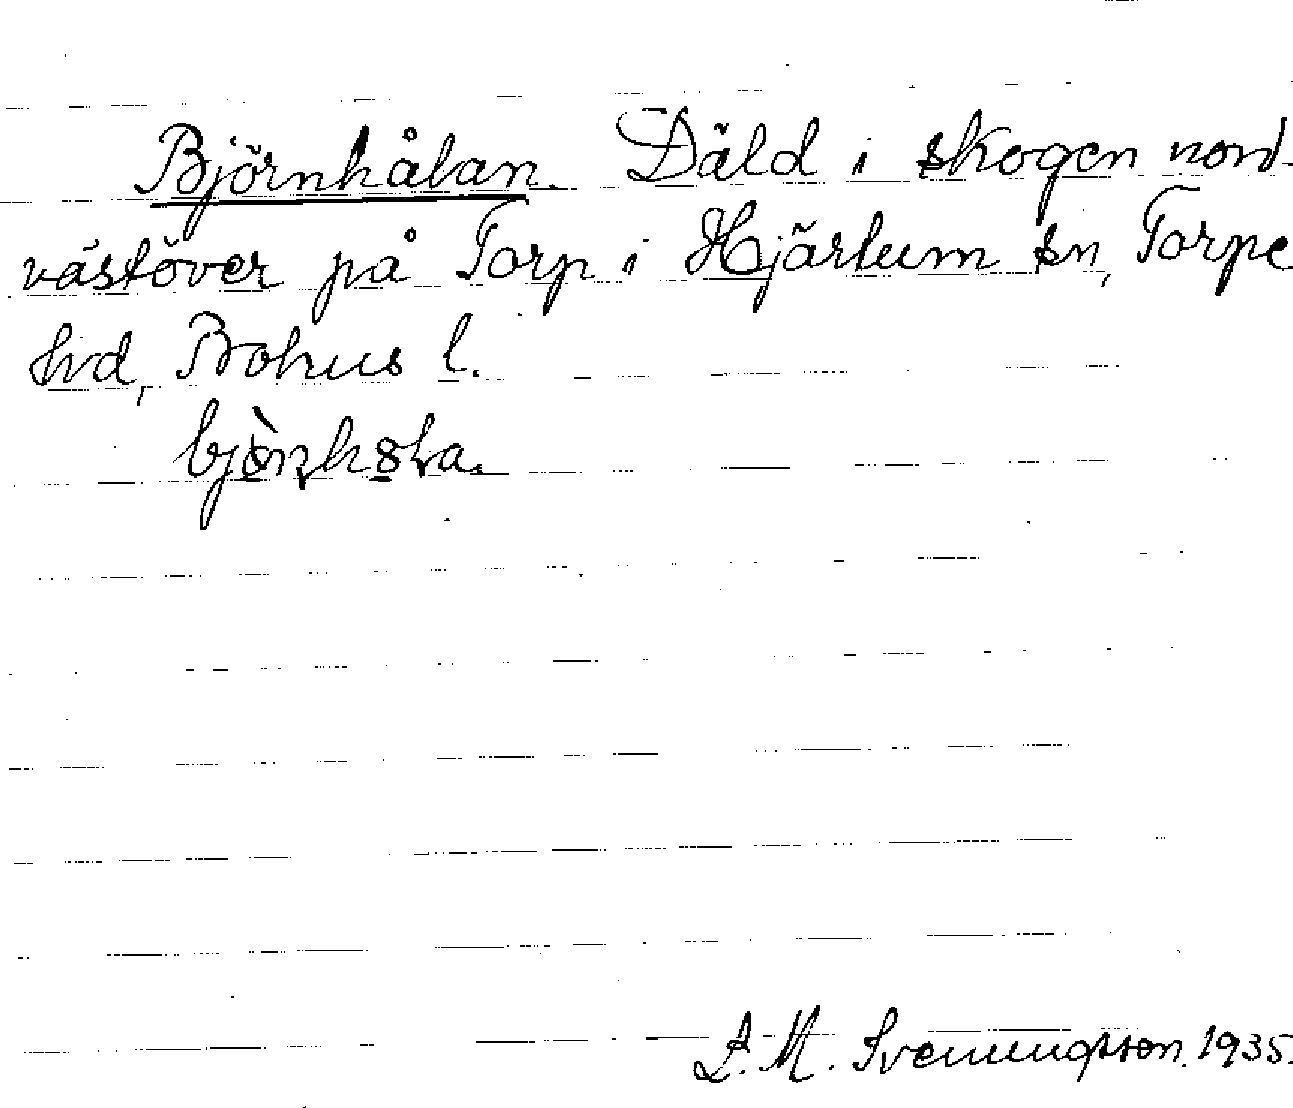 Björnhålan. Däld i skogen nord-
västöver på Torp i Hjärtum sn, Torpe
hrd, Bohus l.
S. M. Svenungsson. 1935.